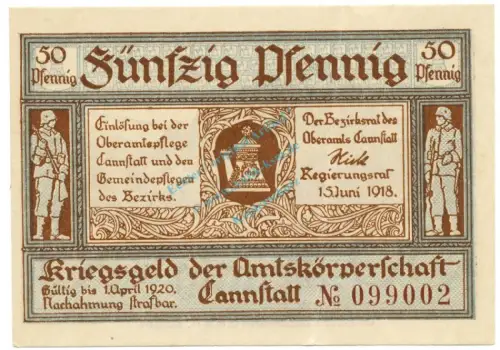 50 Pfennig
Fünfzig Pfennig
50 Pfennig
Einlösung bei der
Oberamtspflege
Cannstatt und den
Gemeindepflegen
des Bezirks.
Der Bezirksrat des
Oberamts Cannstatt
Regierungsrat
15. Juni 1918.
Kriegsgeld der Amtskörperschaft
Gültig bis 1. April 1920.
Nachahmung strafbar.
Cannstatt № 099002